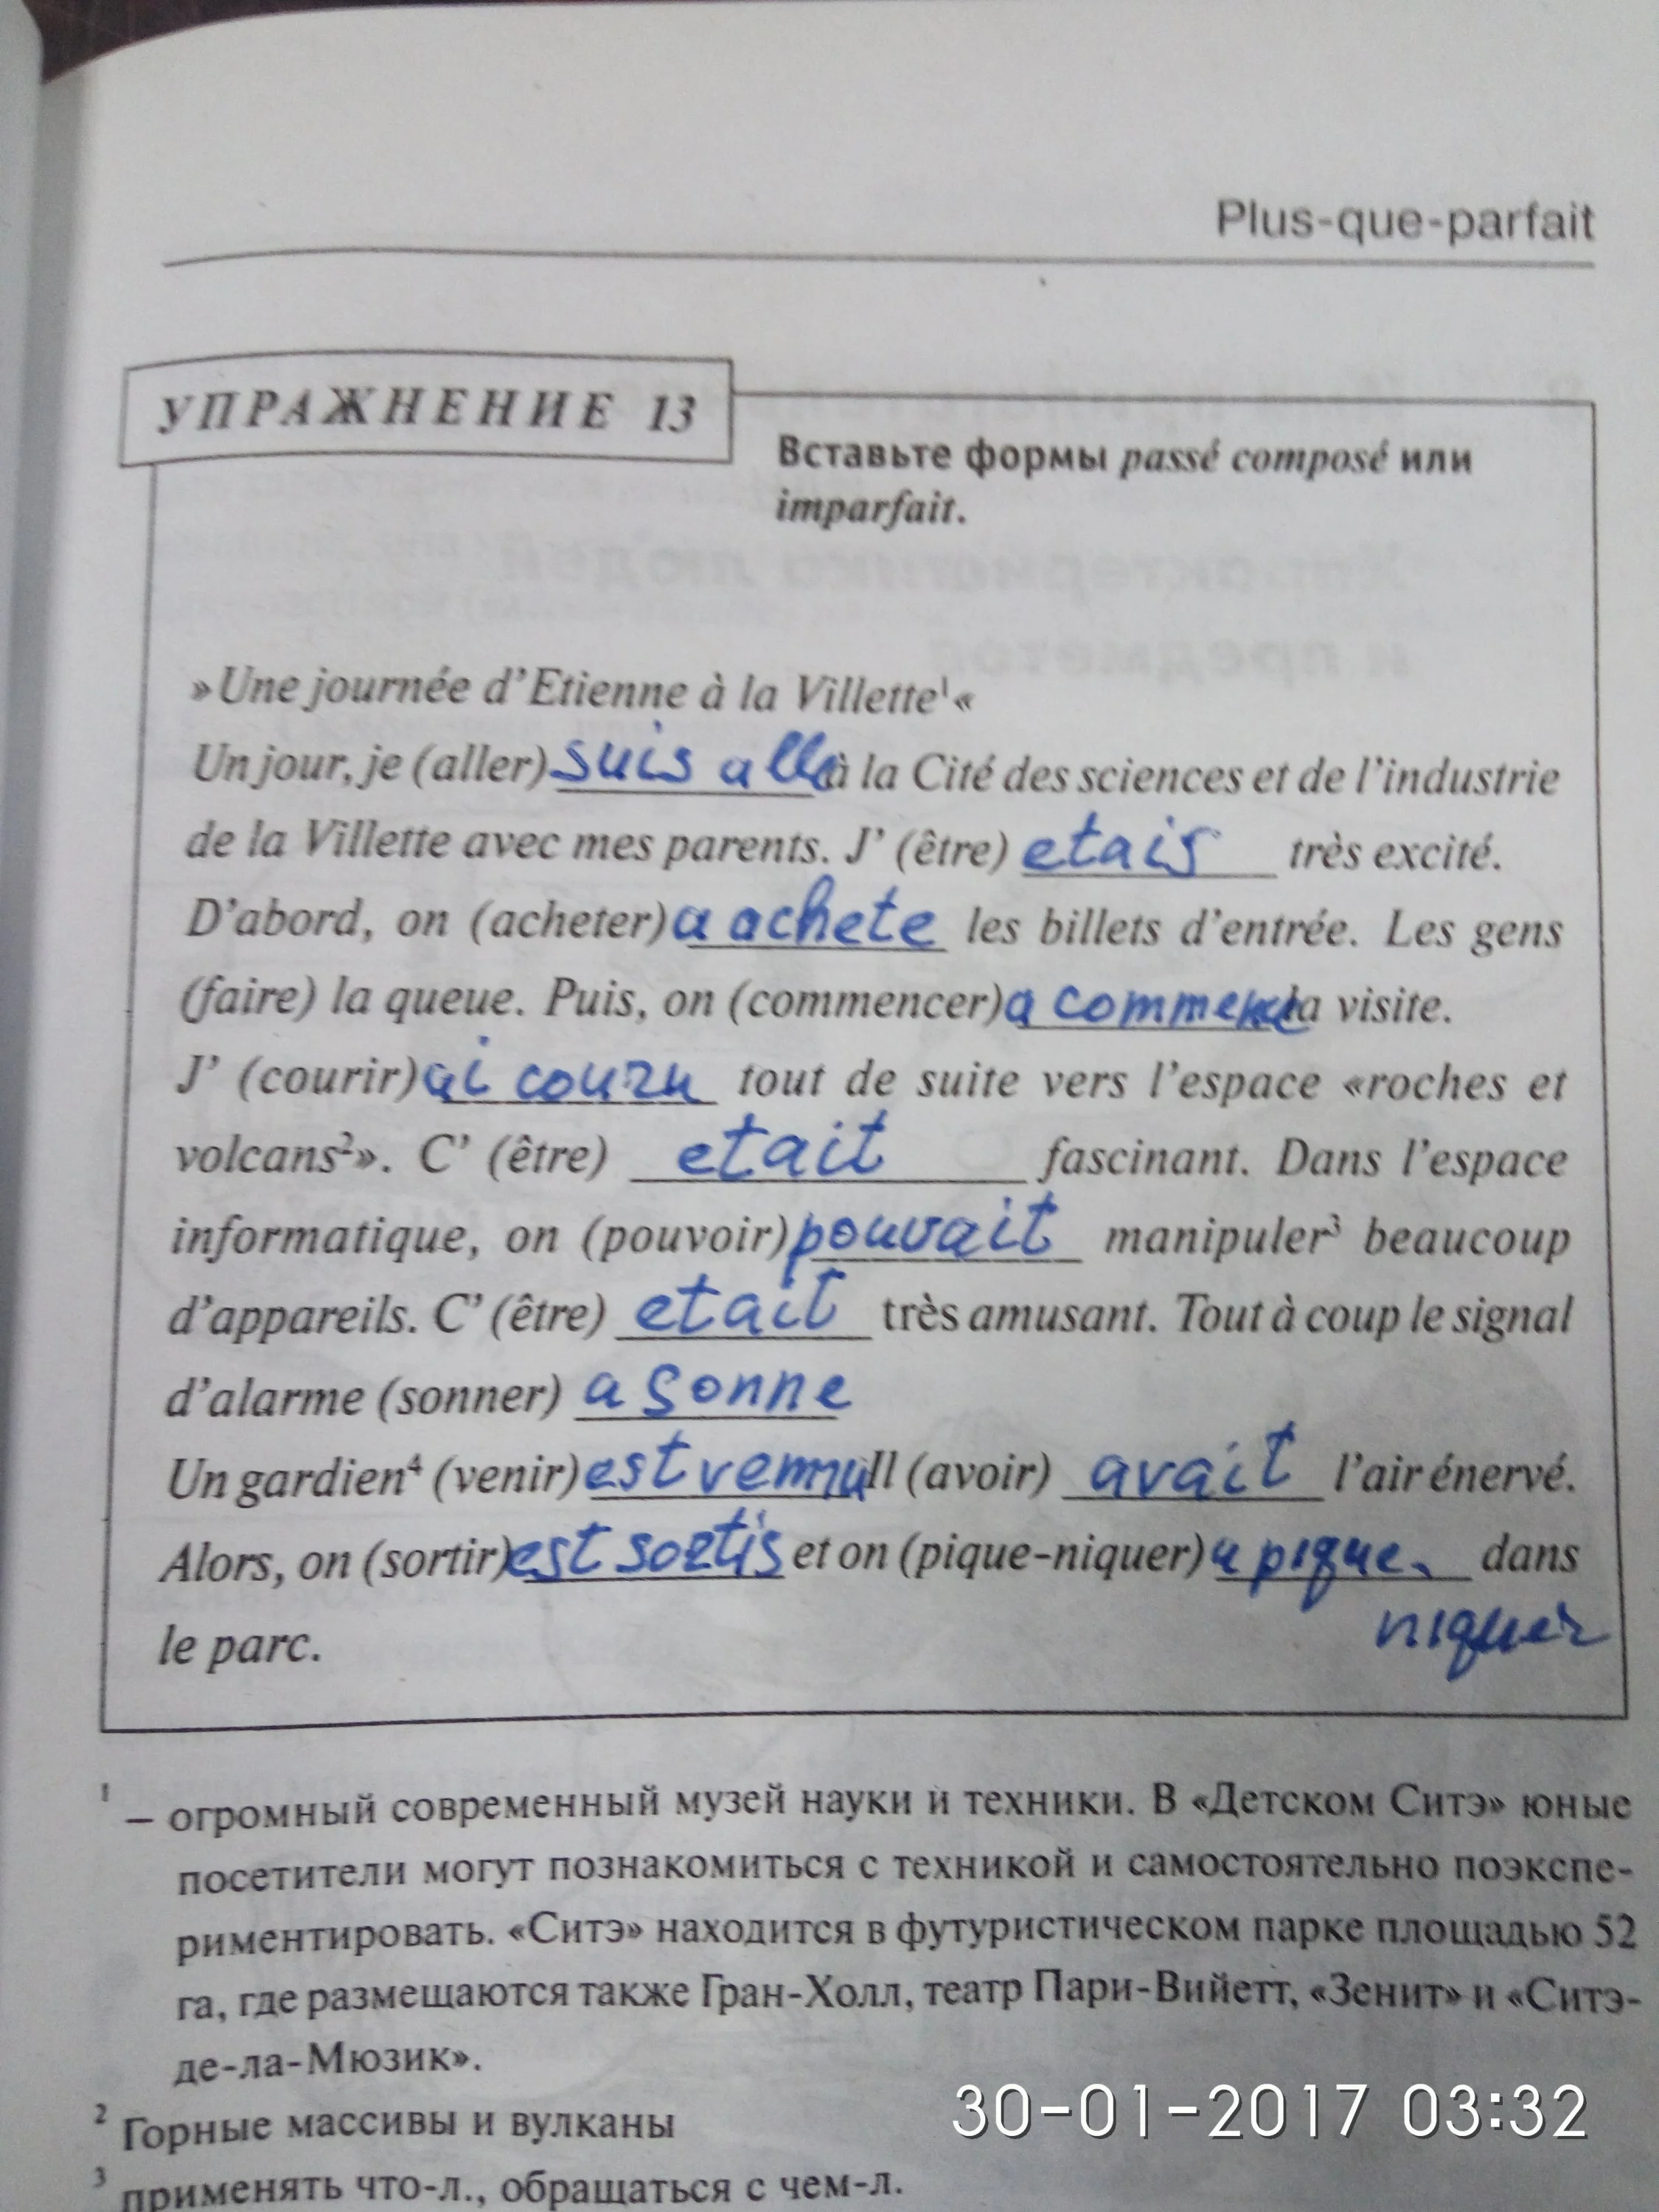 Plus-que-parfait
УПРАЖНЕНИЕ 13
Вставьте формы passé composé или
imparfait.
»Une journée d'Etienne à la Villette¹«
Un jour, je (aller) suis allé à la Cité des sciences et de l'industrie
de la Villette avec mes parents. J' (être) etais très excité.
D'abord, on (acheter) a achete les billets d'entrée. Les gens
(faire) la queue. Puis, on (commencer) a commence la visite.
J' (courir) ai couru tout de suite vers l'espace «roches et
volcans²». C' (être) etait fascinant. Dans l'espace
informatique, on (pouvoir) pouvait manipuler³ beaucoup
d'appareils. C' (être) etait très amusant. Tout à coup le signal
d'alarme (sonner) a sonne
Un gardien⁴ (venir) est vennu Il (avoir) avait l'air énervé.
Alors, on (sortir) est sortis et on (pique-niquer) a pique- dans
niquer
le parc.
¹ – огромный современный музей науки и техники. В «Детском Ситэ» юные
посетители могут познакомиться с техникой и самостоятельно поэкспе-
риментировать. «Ситэ» находится в футуристическом парке площадью 52
га, где размещаются также Гран-Холл, театр Пари-Вийетт, «Зенит» и «Ситэ-
де-ла-Мюзик».
² Горные массивы и вулканы
³ применять что-л., обращаться с чем-л.
30-01-2017 03:32